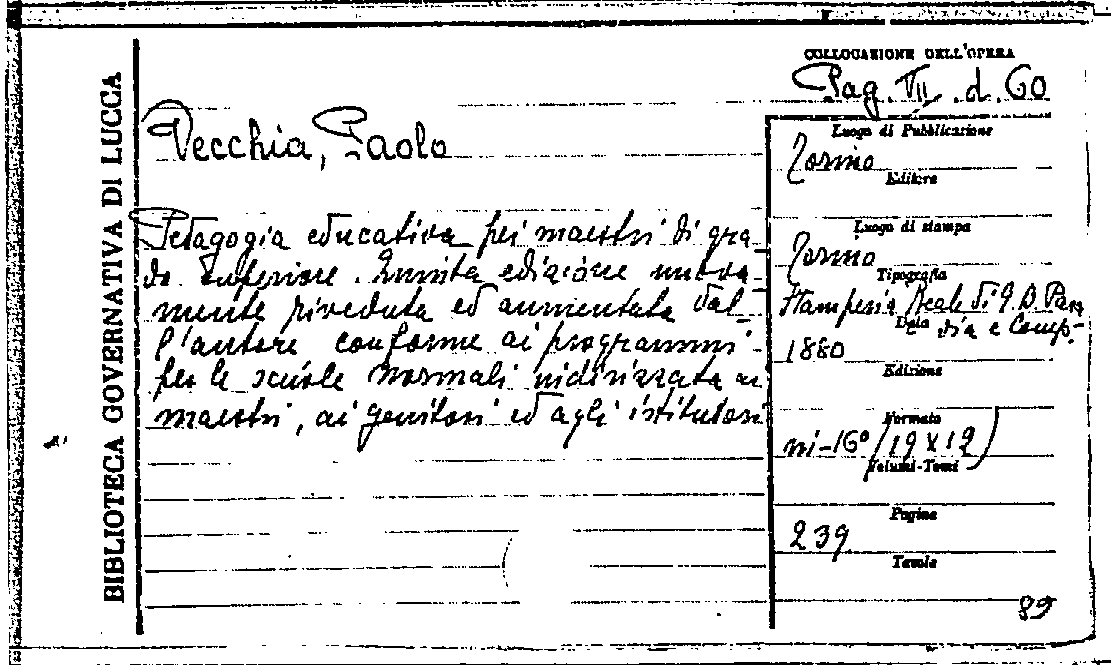 BIBLIOTECA GOVERNATIVA DI LUCCA
COLLOCAZIONE DELL'OPERA
Pag. VII. d. 60
Vecchia, Paolo
Pedagogia educativa pei maestri di gra-
do superiore. Quinta edizione nuova-
mente riveduta ed aumentata dal-
l'autore conforme ai programmi
per le scuole normali indirizzata ai
maestri, ai genitori ed agli istitutori
Luogo di Pubblicazione
Torino
Editore
Luogo di stampa
Torino
Tipografia
Stamperia Reale di G. B. Para
via e Comp.
Data
1880
Edizione
Formato
in-16° (19 x 12)
Volumi-Tomi
Pagine
239
Tavole
89